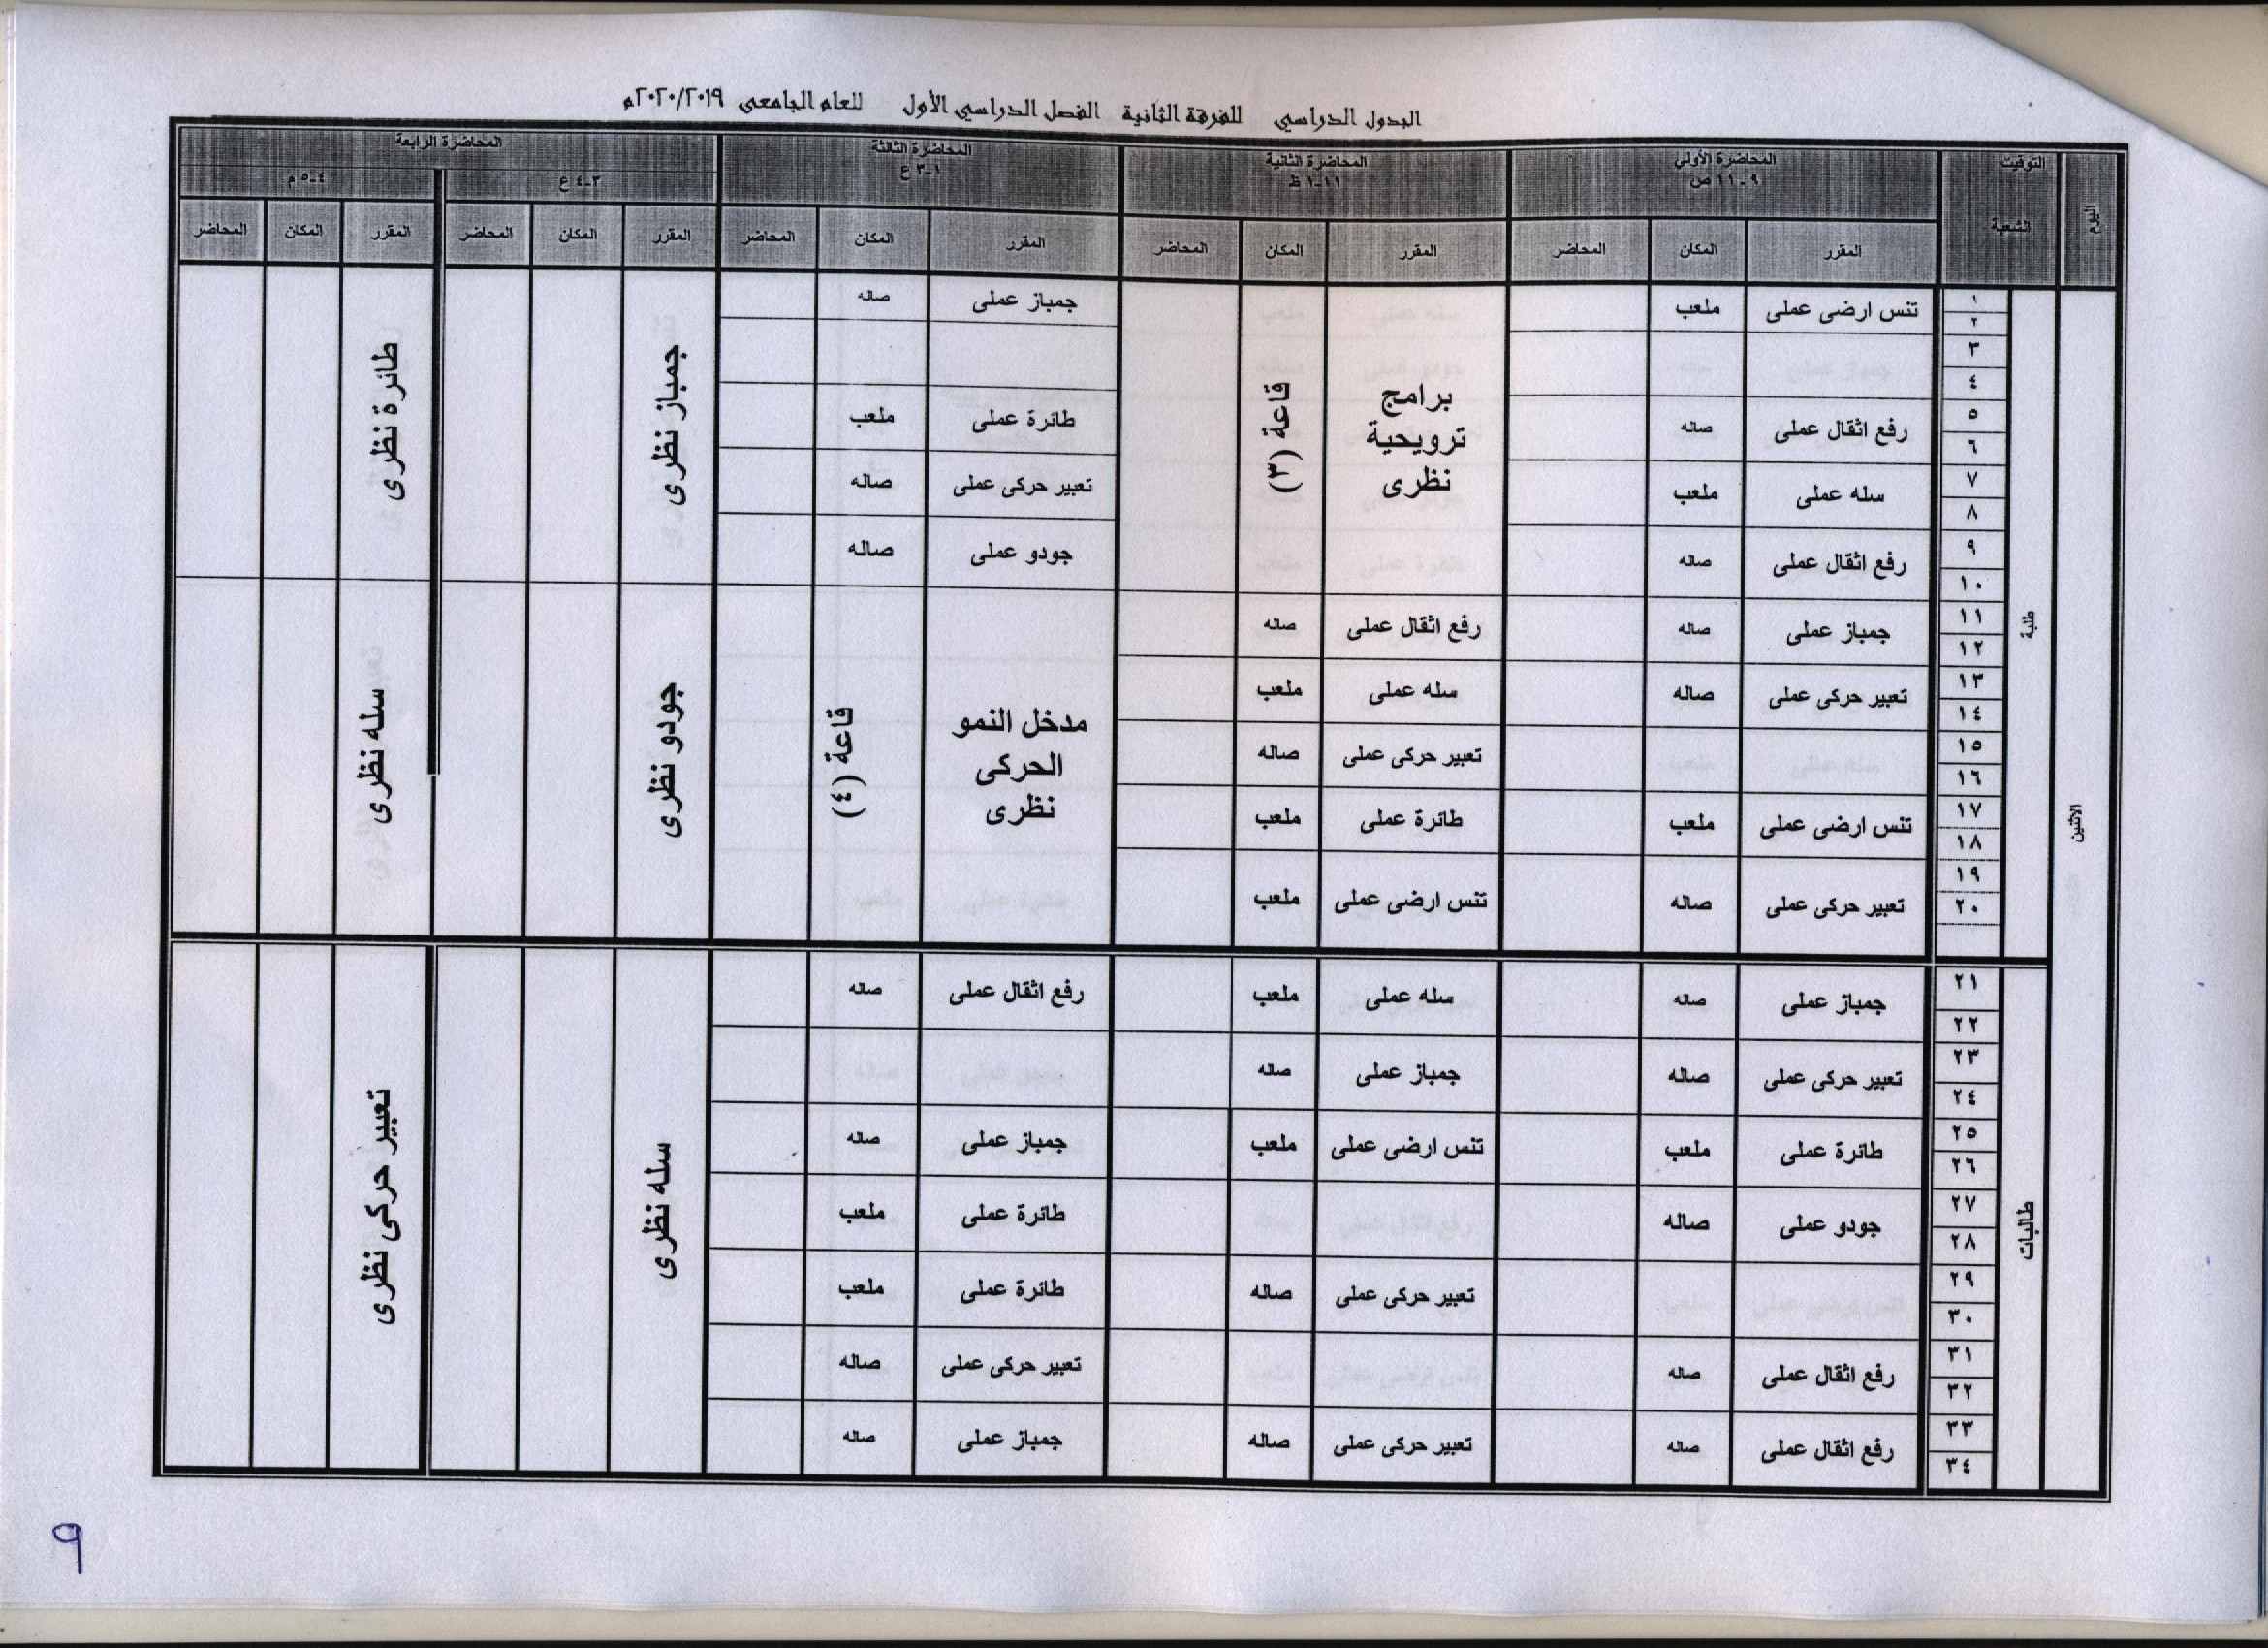 الجدول الدراسي للفرقة الثانية الفصل الدراسي الأول للعام الجامعى ٢٠٢٠/٢٠١٩م
اليوم التوقيت الشعبة المحاضرة الأولي المحاضرة الثانية المحاضرة الثالثة المحاضرة الرابعة
٩-١١ ص ١١-١ ظ ١-٣ ع ٣-٤ ع ٤-٥ م
المقرر المكان المحاضر المقرر المكان المحاضر المقرر المكان المحاضر المقرر المكان المحاضر المقرر المكان المحاضر
الاثنين
طلبة
١ ٢ تنس ارضى عملى ملعب جمباز عملى صاله
٣ ٤
برامج ترويحية نظرى قاعة (٣)
جمباز نظرى
طائرة نظرى
٥ ٦ رفع اثقال عملى صاله طائرة عملى ملعب
٧ ٨ سله عملى ملعب تعبير حركى عملى صاله
٩ ١٠ رفع اثقال عملى صاله جودو عملى صاله
١١ ١٢ جمباز عملى صاله رفع اثقال عملى صاله
١٣ ١٤ تعبير حركى عملى صاله سله عملى ملعب
مدخل النمو الحركى نظرى قاعة (٤)
جودو نظرى
سله نظرى
١٥ ١٦ تعبير حركى عملى صاله
١٧ ١٨ تنس ارضى عملى ملعب طائرة عملى ملعب
١٩ ٢٠ تعبير حركى عملى صاله تنس ارضى عملى ملعب
طالبات
٢١ ٢٢ جمباز عملى صاله سله عملى ملعب رفع اثقال عملى صاله
٢٣ ٢٤ تعبير حركى عملى صاله جمباز عملى صاله
٢٥ ٢٦ طائرة عملى ملعب تنس ارضى عملى ملعب جمباز عملى صاله
سله نظرى
تعبير حركى نظرى
٢٧ ٢٨ جودو عملى صاله طائرة عملى ملعب
٢٩ ٣٠ تعبير حركى عملى صاله طائرة عملى ملعب
٣١ ٣٢ رفع اثقال عملى صاله تعبير حركى عملى صاله
٣٣ ٣٤ رفع اثقال عملى صاله تعبير حركى عملى صاله جمباز عملى صاله
٩